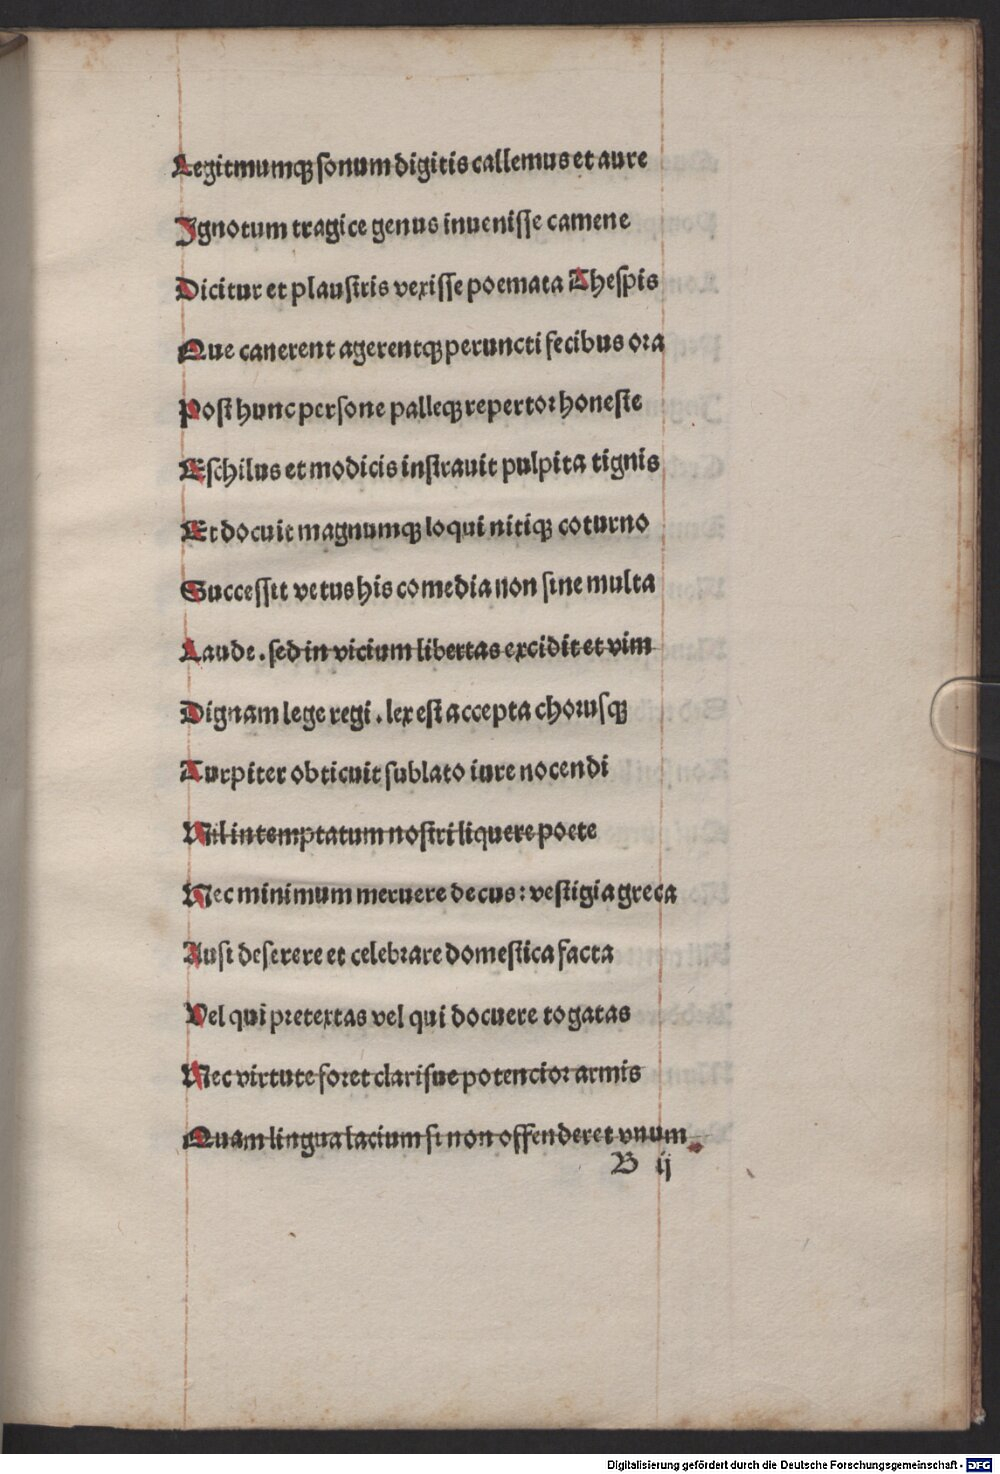 Legitmumqꝫ sonum digitis callemus et aure
Ignotum tragice genus inuenisse camene
Dicitur et plaustris vexisse poemata Thespis
Que canerent agerentqꝫ peruncti fecibus ora
Post hunc persone palleqꝫ repertor honeste
Eschilus et modicis instrauit pulpita tignis
Et docuit magnumqꝫ loqui nitiqꝫ coturno
Successit vetus his comedia non sine multa
Laude . sed in vicium libertas excidit et vim
Dignam lege regi . lex est accepta chorusqꝫ
Turpiter obticuit sublato iure nocendi
Nil intemptatum nostri liquere poete
Nec minimum meruere decus : vestigia greca
Ausi deserere et celebrare domestica facta
Vel qui pretextas vel qui docuere togatas
Nec virtute foret clarisue potencior armis
Quam lingua lacium si non offenderet vnum
B ij
Digitalisierung gefördert durch die Deutsche Forschungsgemeinschaft - DFG